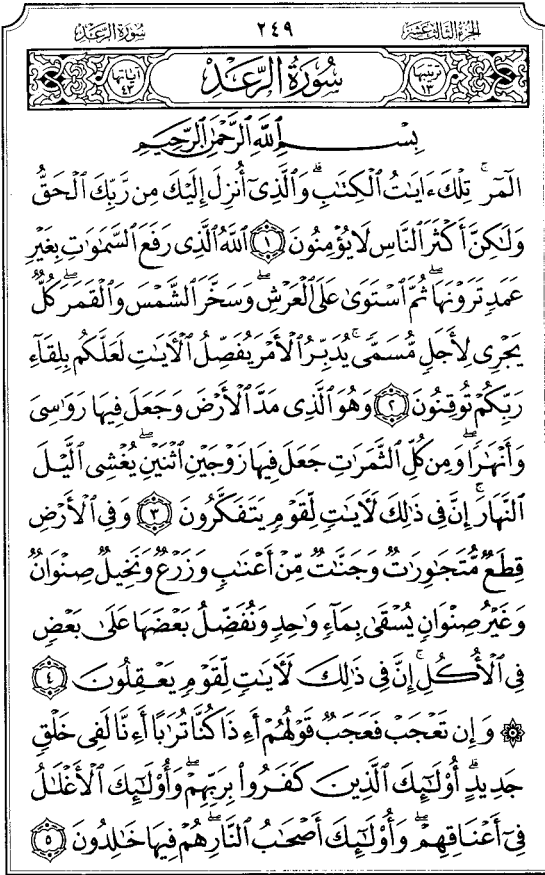 الجزء الثالث عشر ٢٤٩ سورة الرعد
ترتيبها ١٣ سُورَةُ الرَّعْدِ آياتها ٤٣
بِسْمِ اللَّهِ الرَّحْمَٰنِ الرَّحِيمِ
الٓمٓر ۚ تِلْكَ ءَايَٰتُ ٱلْكِتَٰبِ ۗ وَٱلَّذِىٓ أُنزِلَ إِلَيْكَ مِن رَّبِّكَ ٱلْحَقُّ
وَلَٰكِنَّ أَكْثَرَ ٱلنَّاسِ لَا يُؤْمِنُونَ ١ ٱللَّهُ ٱلَّذِى رَفَعَ ٱلسَّمَٰوَٰتِ بِغَيْرِ
عَمَدٍ تَرَوْنَهَا ۖ ثُمَّ ٱسْتَوَىٰ عَلَى ٱلْعَرْشِ ۖ وَسَخَّرَ ٱلشَّمْسَ وَٱلْقَمَرَ ۖ كُلٌّ
يَجْرِى لِأَجَلٍ مُّسَمًّى ۚ يُدَبِّرُ ٱلْأَمْرَ يُفَصِّلُ ٱلْءَايَٰتِ لَعَلَّكُم بِلِقَآءِ
رَبِّكُمْ تُوقِنُونَ ٢ وَهُوَ ٱلَّذِى مَدَّ ٱلْأَرْضَ وَجَعَلَ فِيهَا رَوَٰسِىَ
وَأَنْهَٰرًا ۖ وَمِن كُلِّ ٱلثَّمَرَٰتِ جَعَلَ فِيهَا زَوْجَيْنِ ٱثْنَيْنِ ۖ يُغْشِى ٱلَّيْلَ
ٱلنَّهَارَ ۚ إِنَّ فِى ذَٰلِكَ لَءَايَٰتٍ لِّقَوْمٍ يَتَفَكَّرُونَ ٣ وَفِى ٱلْأَرْضِ
قِطَعٌ مُّتَجَٰوِرَٰتٌ وَجَنَّٰتٌ مِّنْ أَعْنَٰبٍ وَزَرْعٌ وَنَخِيلٌ صِنْوَانٌ
وَغَيْرُ صِنْوَانٍ يُسْقَىٰ بِمَآءٍ وَٰحِدٍ وَنُفَضِّلُ بَعْضَهَا عَلَىٰ بَعْضٍ
فِى ٱلْأُكُلِ ۚ إِنَّ فِى ذَٰلِكَ لَءَايَٰتٍ لِّقَوْمٍ يَعْقِلُونَ ٤
۞ وَإِن تَعْجَبْ فَعَجَبٌ قَوْلُهُمْ أَءِذَا كُنَّا تُرَٰبًا أَءِنَّا لَفِى خَلْقٍ
جَدِيدٍ ۗ أُو۟لَٰٓئِكَ ٱلَّذِينَ كَفَرُوا۟ بِرَبِّهِمْ ۖ وَأُو۟لَٰٓئِكَ ٱلْأَغْلَٰلُ
فِىٓ أَعْنَاقِهِمْ ۖ وَأُو۟لَٰٓئِكَ أَصْحَٰبُ ٱلنَّارِ ۖ هُمْ فِيهَا خَٰلِدُونَ ٥